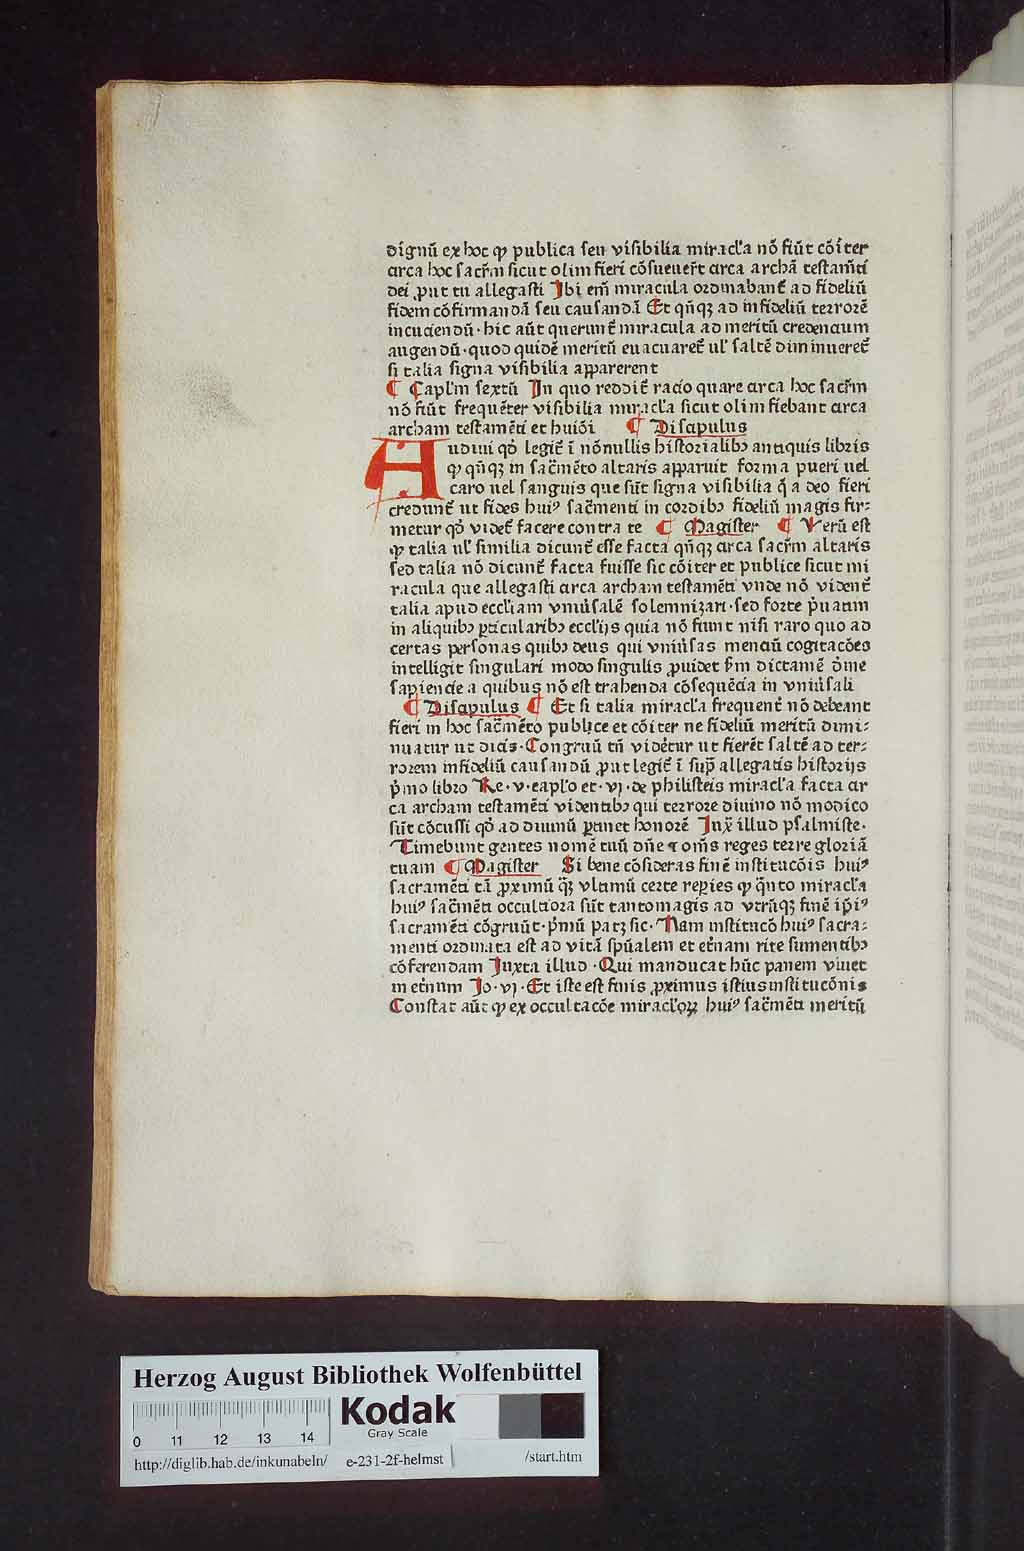 dignū ex hoc ꝙ publica seu visibilia miracl'a nō fiūt cōiter
circa hoc sacr̄m sicut olim fieri cōsueuer̄t circa archā testam̄ti
dei ꝓut tu allegasti Ibi em̄ miracula ordinabant᷑ ad fideliū
fidem cōfirmandā seu causandā Et qn̄qꝫ ad infideliū terrorē
incuciendū · hic aūt querunt᷑ miracula ad meritū credencium
augendū · quod quidē meritū euacuaret᷑ ul' saltē diminueret᷑
si talia signa visibilia apparerent
¶ Capl'm sextū In quo reddit᷑ racio quare circa hoc sacr̄m
nō fiūt frequēter visibilia miracl'a sicut olim fiebant circa
archam testamēti et huiōi ¶ Discipulus
Audiui qd̕ legit᷑ ī nōnullis historialibꝰ antiquis libris
ꝙ qn̄qꝫ in sac̄mēto altaris apparuit forma pueri uel
caro uel sanguis que sūt signa visibilia q̄ a deo fieri
credunt᷑ ut fides huiꝰ sac̄menti in cordibꝰ fideliū magis fir⸗
metur qd̕ videt᷑ facere contra te ¶ Magister ¶ Verū est
ꝙ talia ul' similia dicunt᷑ esse facta qn̄qꝫ circa sacr̄m altaris
sed talia nō dicunt᷑ facta fuisse sic cōiter et publice sicut mi
racula que allegasti circa archam testamēti vnde nō vident᷑
talia apud eccl'iam vniu̕salē solemnizari · sed forte p̕uatim
in aliquibꝰ ꝑticularibꝰ eccl'ijs quia nō fiunt nisi raro quo ad
certas personas quibꝰ deus qui vniu̕sas menciū cogitacōes
intelligit singulari modo singulis ꝓuidet ẜm dictamē diīne
sapiencie a quibus nō est trahenda cōsequēcia in vniu̕sali
¶ Discipulus ¶ Et si talia miracl'a frequent᷑ nō debeant
fieri in hoc sac̄mēto publice et cōiter ne fideliū meritū dimi⸗
nuatur ut dicis · Congruū tn̄ videt̕ur ut fierēt saltē ad ter⸗
rorem infideliū causandū ꝓut legit᷑ ī sup̄ allegatis historijs
p̕mo libro Re · v · capl'o et · vj · de philisteis miracl'a facta cir
ca archam testamēti videntibꝰ qui terrore diuino nō modico
sūt cōcussi qd̕ ad diuinū ꝑtinet honorē Iux̄ illud psalmiste ·
Timebunt gentes nomē tuū dn̄e ⁊ om̄s reges terre gloriā
tuam ¶ Magister Si bene cōsideras finē institucōis huiꝰ
sacramēti tā ꝓximū q̄ꝫ vltimū certe reꝑies ꝙ q̄nto miracl'a
huiꝰ sac̄mēti occultiora sūt tantomagis ad vtrūqꝫ finē ip̄iꝰ
sacramēti cōgruūt · p̕mū patꝫ sic · Nam institucō huiꝰ sacra⸗
menti ordinata est ad vitā sp̄ualem et et̕nam rite sumentibꝰ
cōferendam Iuxta illud · Qui manducat hūc panem viuet
in et̕num Jo · vj · Et iste est finis ꝓximus istius institucōnis
Constat aūt ꝙ ex occultacōe miracl'oꝝ huiꝰ sac̄mēti meritū
Herzog August Bibliothek Wolfenbüttel
Kodak
Gray Scale
0 11 12 13 14
http://diglib.hab.de/inkunabeln/ e-231-2f-helmst /start.htm